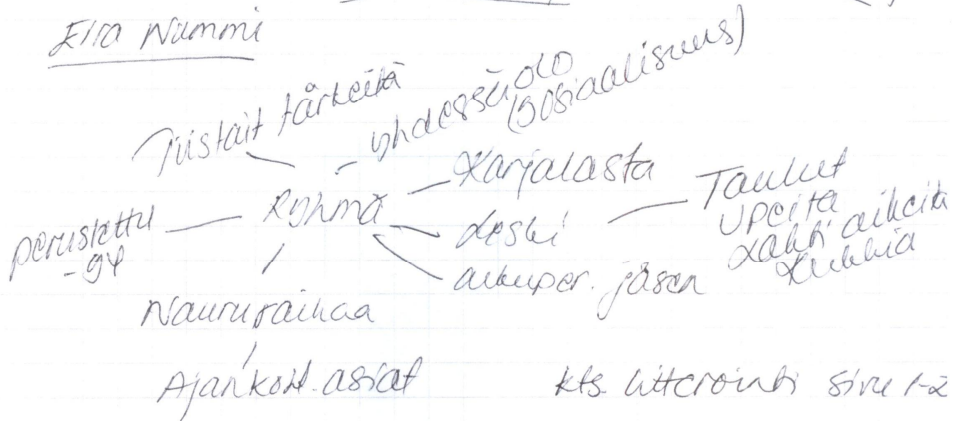 Nummi
Tiistait tärkeitä
yhdessäolo
(sosiaalisuus)
Karjalasta
Ryhmä
perustettu
-94
Leski
Taulut
upeita
Lahti aiheita
Kukkia
alkuper. jäsen
Naururaikaa
Ajankoht. asiat
kts. litterointi sivu 1-2